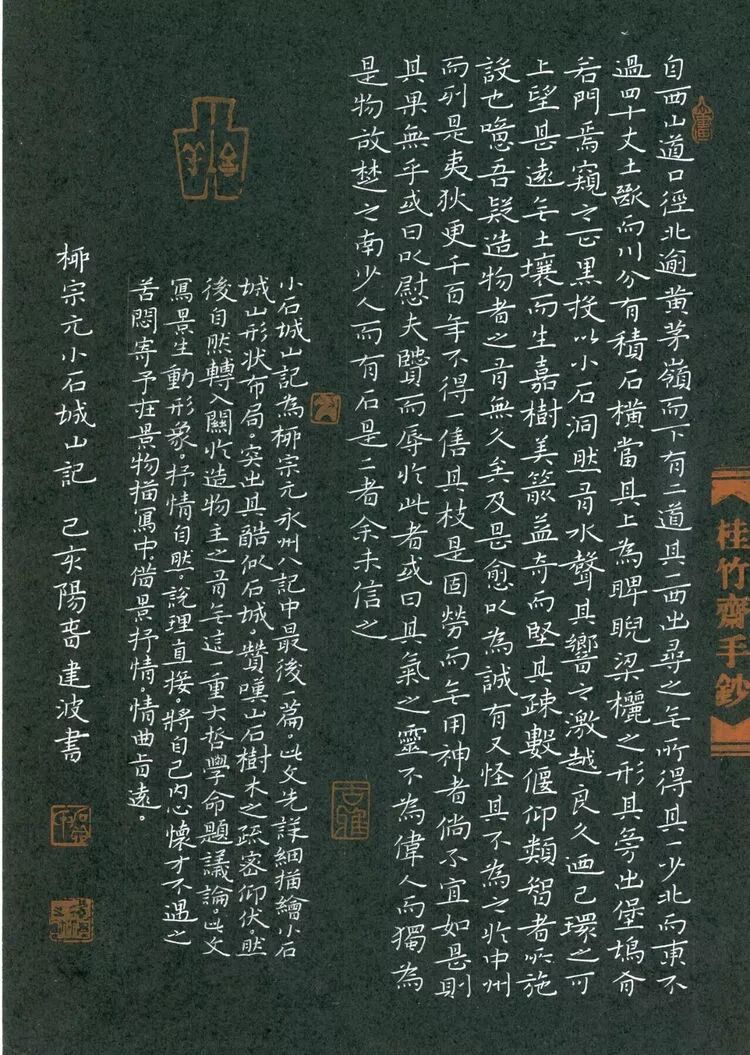 桂竹齋手鈔
自西山道口徑北逾黃茅嶺而下有二道其一西出尋之无所得其一少北而東不
過四十丈土斷而川分有積石橫當其上為睥睨梁欐之形其旁出堡塢有
若門焉窺之正黑投以小石洞然有水聲其響之激越良久迺已環之可
上望甚遠无土壤而生嘉樹美箭益奇而堅其疎數偃仰類智者所施
設也噫吾疑造物者之有無久矣及是愈以為誠有又怪其不為之於中州
而列是夷狄更千百年不得一售其技是固勞而无用神者倘不宜如是則
其果無乎或曰以慰夫賢而辱於此者或曰其氣之靈不為偉人而獨為
是物故楚之南少人而有石是二者余未信之
小石城山記為柳宗元永州八記中最後一篇。此文先詳細描繪小石
城山形狀布局。突出其酷似石城。贊嘆山石樹木之疏密仰伏。然
後自然轉入關於造物主之有无這一重大哲學命題議論。此文
寫景生動形象。抒情自然。說理直接。將自己內心懷才不遇之
苦悶寄予在景物描寫中。借景抒情。情曲旨遠。
柳宗元小石城山記 己亥陽春建波書
古雅